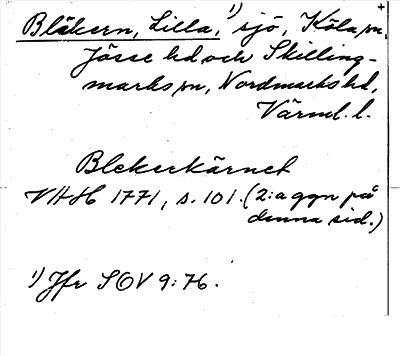 Bläkern, Lilla,¹) sjö, Köla sn,
Jösse hd och Skilling-
marks sn, Nordmarks hd,
Värml. l.
Blekerkärnet
VHH 1771, s. 101. (2:a ggn på
denna sid.)
¹) Jfr SOV 9:76.